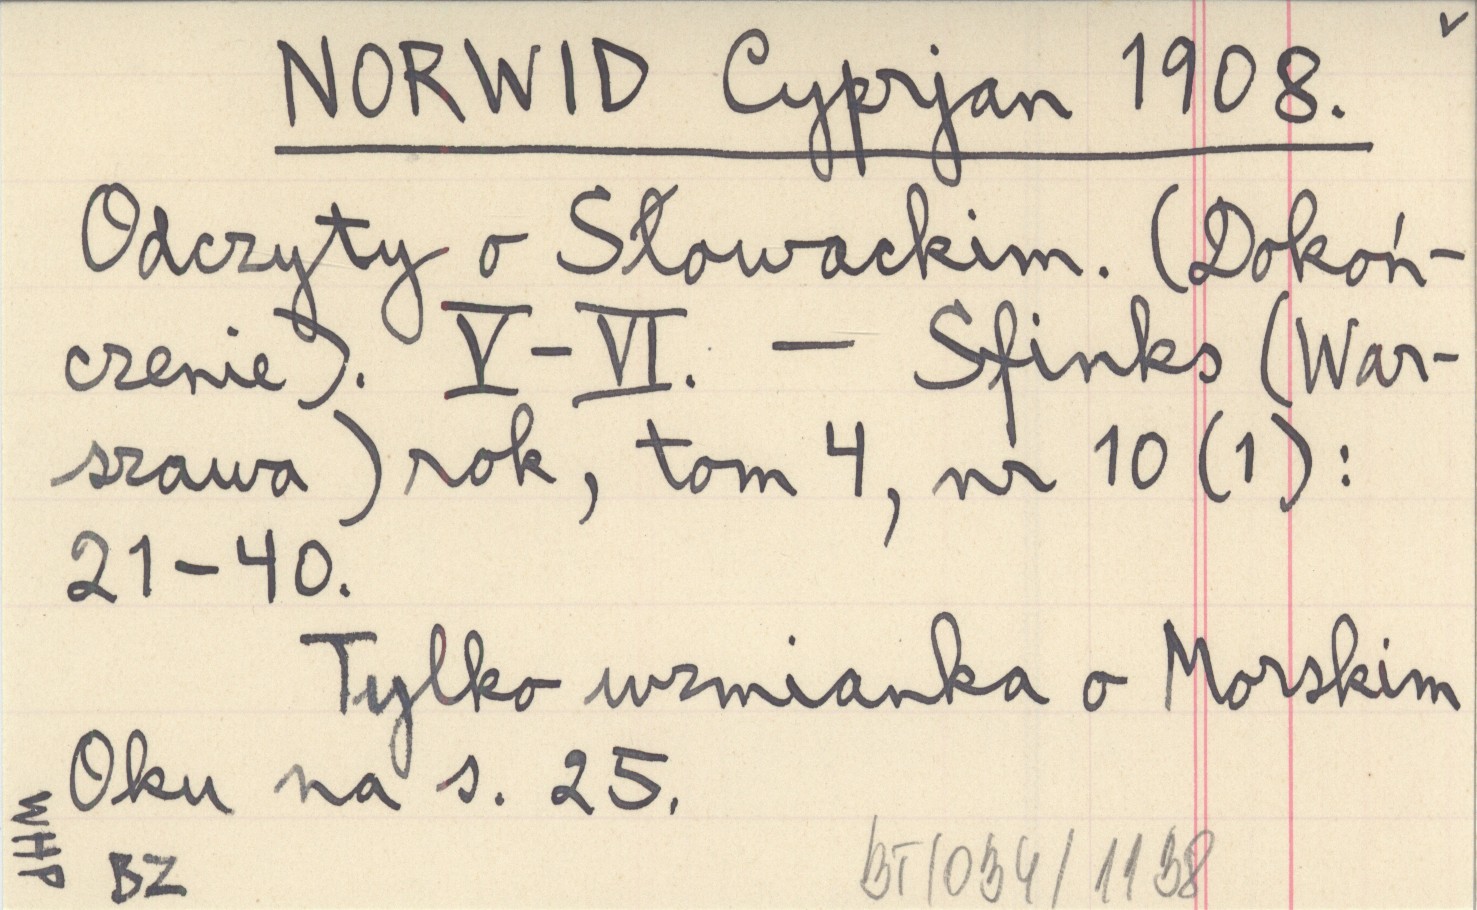 ✓
NORWID Cyprjan 1908.
Odczyty o Słowackim. (Dokoń-
czenie). V–VI. — Sfinks (War-
szawa) rok, tom 4, nr 10 (1):
21–40.
Tylko wzmianka o Morskim
Oku na s. 25.
WHP
BZ
BT/034/1138